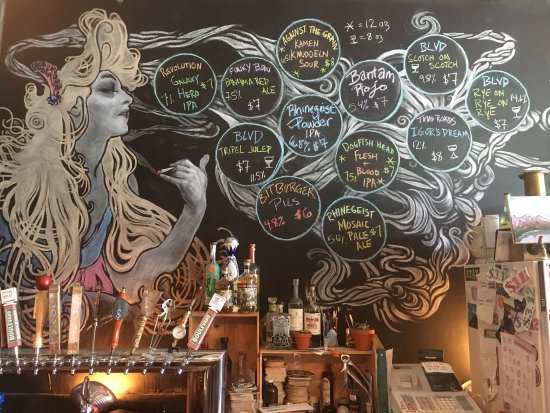 = 12 oz
= 8 oz
REVOLUTION
GALAXY
HERO
IPA
7%
$7
FUNKY BOW
PANAMA RED
ALE
7.5%
$7
AGAINST THE GRAIN
KAMEN
KNUDDELN
SOUR
$8
BLVD
SCOTCH ON
SCOTCH
9.8%
$7
Bantam
Rojo
5.4%
$7
BLVD
RYE ON
RYE ON
RYE
$7
Rhinegeist
Powder
IPA
6.8%
$7
TWO ROADS
IGOR'S DREAM
12%
$8
BLVD
TRIPEL JULEP
$7
11.5%
DOGFISH HEAD
FLESH
+
BLOOD
IPA
7.5%
$7
BITBURGER
PILS
4.8%
$6
RHINEGEIST
MOSAIC
PALE
ALE
5.6%
$7